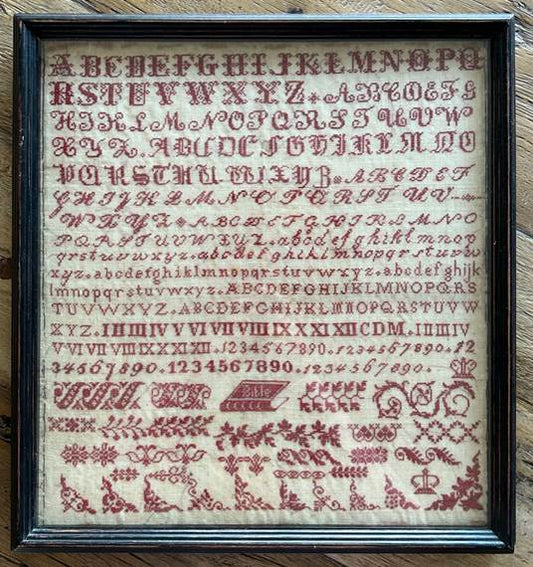 ABCDEFGHIJKLMNOPQ
RSTUVWXYZ*ABCDEFG
HIJKLMNOPQRSTUVW
XYZ.ABCDEFGHIKLMNO
PQRSTUVWXYZ*ABCDEF
GHIJKLMNOPQRSTUV
WXYZ*ABCDEFGHIJKLMNO
PQRSTUVWXYZ.abcdefghiklmnop
qrstuvwxyz.abcdefghiklmnopqrstuvw
xyz.abcdefghiklmnopqrstuvwxyz.abcdefghijk
lmnopqrstuvwxyz.ABCDEFGHIJKLMNOPQRS
TUVWXYZ.ABCDEFGHIJKLMNOPQRSTUVW
XYZ.IIIIIIVVVIVIIVIIIIXXXIXIICDM.IIIIIIIV
VVIVIIVIIIIXXXIXII.1234567890.1234567890.12
34567890.1234567890.1234567890.
Bible